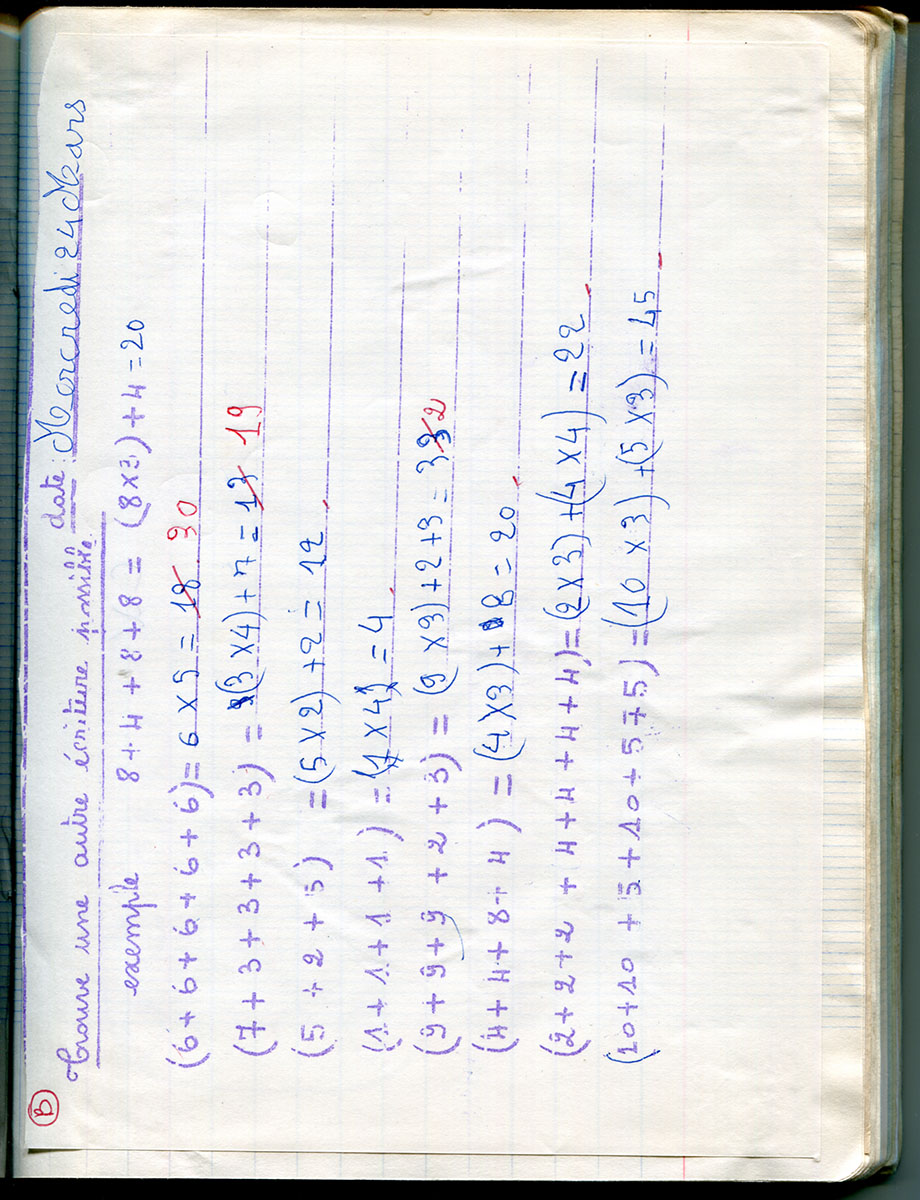 B
Trouve une autre écriture possible. date : Mercredi 24 Mars
exemple 8 + 4 + 8 + 8 = (8 x 3) + 4 = 20
(6 + 6 + 6 + 6 + 6) = 6 x 5 = 18 30
(7 + 3 + 3 + 3 + 3) = (3 x 4) + 7 = 13 19
(5 + 2 + 5) = (5 x 2) + 2 = 12
(1 + 1 + 1 + 1) = (1 x 4) = 4
(9 + 9 + 9 + 2 + 3) = (9 x 3) + 2 + 3 = 33 2
(4 + 4 + 8 + 4) = (4 x 3) + 8 = 20
(2 + 2 + 2 + 4 + 4 + 4 + 4) = (2 x 3) + (4 x 4) = 22
(10 + 10 + 5 + 10 + 5 + 5) = (10 x 3) + (5 x 3) = 45